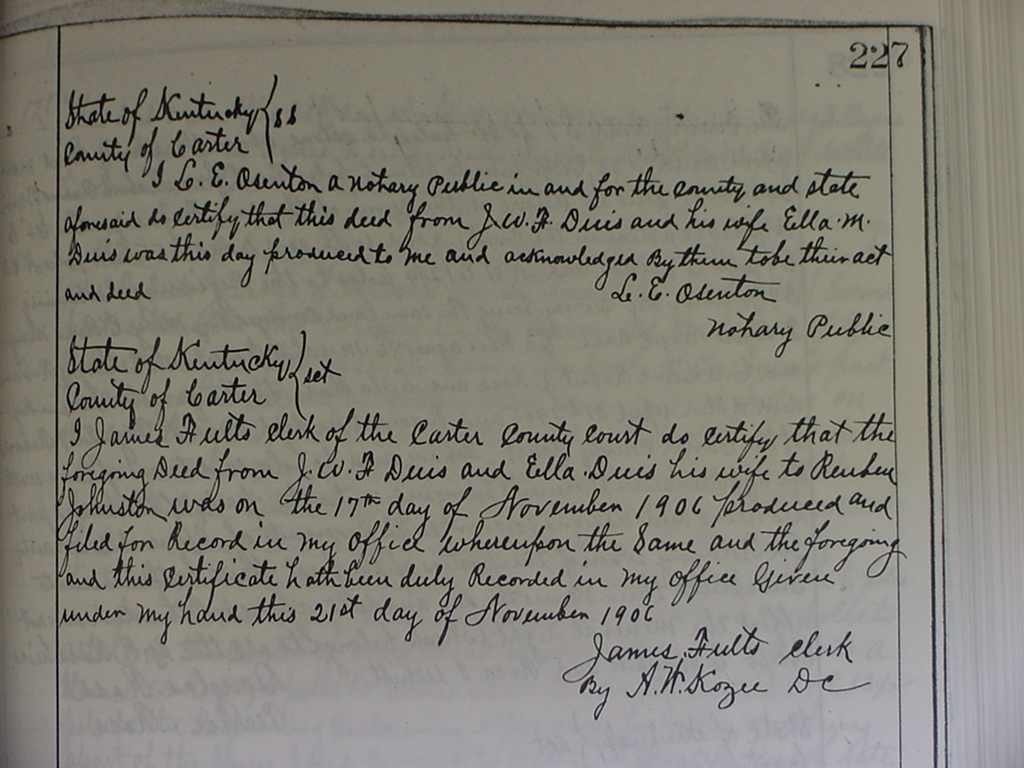 227
State of Kentucky
County of Carter } ss
I L. E. Osenton a Notary Public in and for the county and state
aforesaid do certify that this deed from J. W. F. Duis and his wife Ella. M.
Duis was this day produced to me and acknowledged By them to be their act
and deed L. E. Osenton
Notary Public
State of Kentucky
County of Carter } sct
I James Fults Clerk of the Carter County Court do certify that the
foregoing Deed from J. W. F Duis and Ella. Duis his wife to Reuben
Johnston was on the 17th day of November 1906 produced and
filed for Record in my office whereupon the Same and the foregoing
and this certificate hath been duly Recorded in my office Given
under my hand this 21st day of November 1906
James Fults Clerk
By A. W. Kozee DC